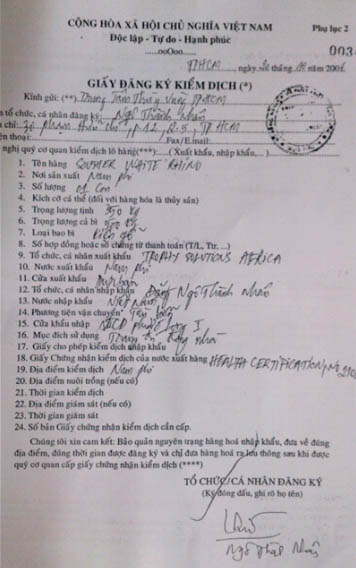 CỘNG HÒA XÃ HỘI CHỦ NGHĨA VIỆT NAM
Phụ lục 2
Độc lập - Tự do - Hạnh phúc
...ooOoo...
003
TPHCM, ngày 20 tháng năm 2006
GIẤY ĐĂNG KÝ KIỂM DỊCH (*)
Kính gửi: (**) Trung Tâm Thú y Vùng TPHCM
tổ chức, cá nhân đăng ký: Ngô Thành Nhân
chỉ: Phạm Hữu Chí P.12, Q.5, TPHCM
Fax/E.mail:
nghị quý cơ quan kiểm dịch lô hàng(***): ( Xuất khẩu, nhập khẩu,... )
1. Tên hàng SOUTHER WHITE RHINO
2. Nơi sản xuất Nam phi
3. Số lượng 01 Con
4. Kích cỡ cá thể (đối với hàng hóa là thủy sản)
5. Trọng lượng tịnh kg
6. Trọng lượng cả bì kg
7. Loại bao bì Kiện gỗ
8. Số hợp đồng hoặc số chứng từ thanh toán (T/L, Tư, ...)
9. Tổ chức, cá nhân xuất khẩu TROPHY SOLUTIONS AFRICA
10. Nước xuất khẩu Nam phi
11. Cửa xuất khẩu Durban
12. Tổ chức, cá nhân nhập khẩu Đăng Ngô Thành Nhân
13. Nước nhập khẩu Việt Nam
14. Phương tiện vận chuyển Tàu
15. Cửa khẩu nhập ICD phước long I
16. Mục đích sử dụng Trưng nhà
17. Giấy cho phép kiểm dịch nhập khẩu
18. Giấy Chứng nhận kiểm dịch của nước xuất hàng HEALTH CERTIFICATION
19. Địa điểm kiểm dịch Nam phi
20. Địa điểm nuôi trồng (nếu có)
21. Thời gian kiểm dịch
22. Địa điểm giám sát (nếu có)
23. Thời gian giám sát
24. Số bản Giấy chứng nhận kiểm dịch cần cấp.
Chúng tôi xin cam kết: Bảo quản nguyên trạng hàng hoá nhập khẩu, đưa về đúng
địa điểm, đúng thời gian được đăng ký và chỉ đưa hàng hoá ra lưu thông sau khi được
quý cơ quan cấp giấy chứng nhận kiểm dịch (****)
TỔ CHỨC/CÁ NHÂN ĐĂNG KÝ
(Ký đóng dấu, ghi rõ họ tên)
Ngô Thành Nhân